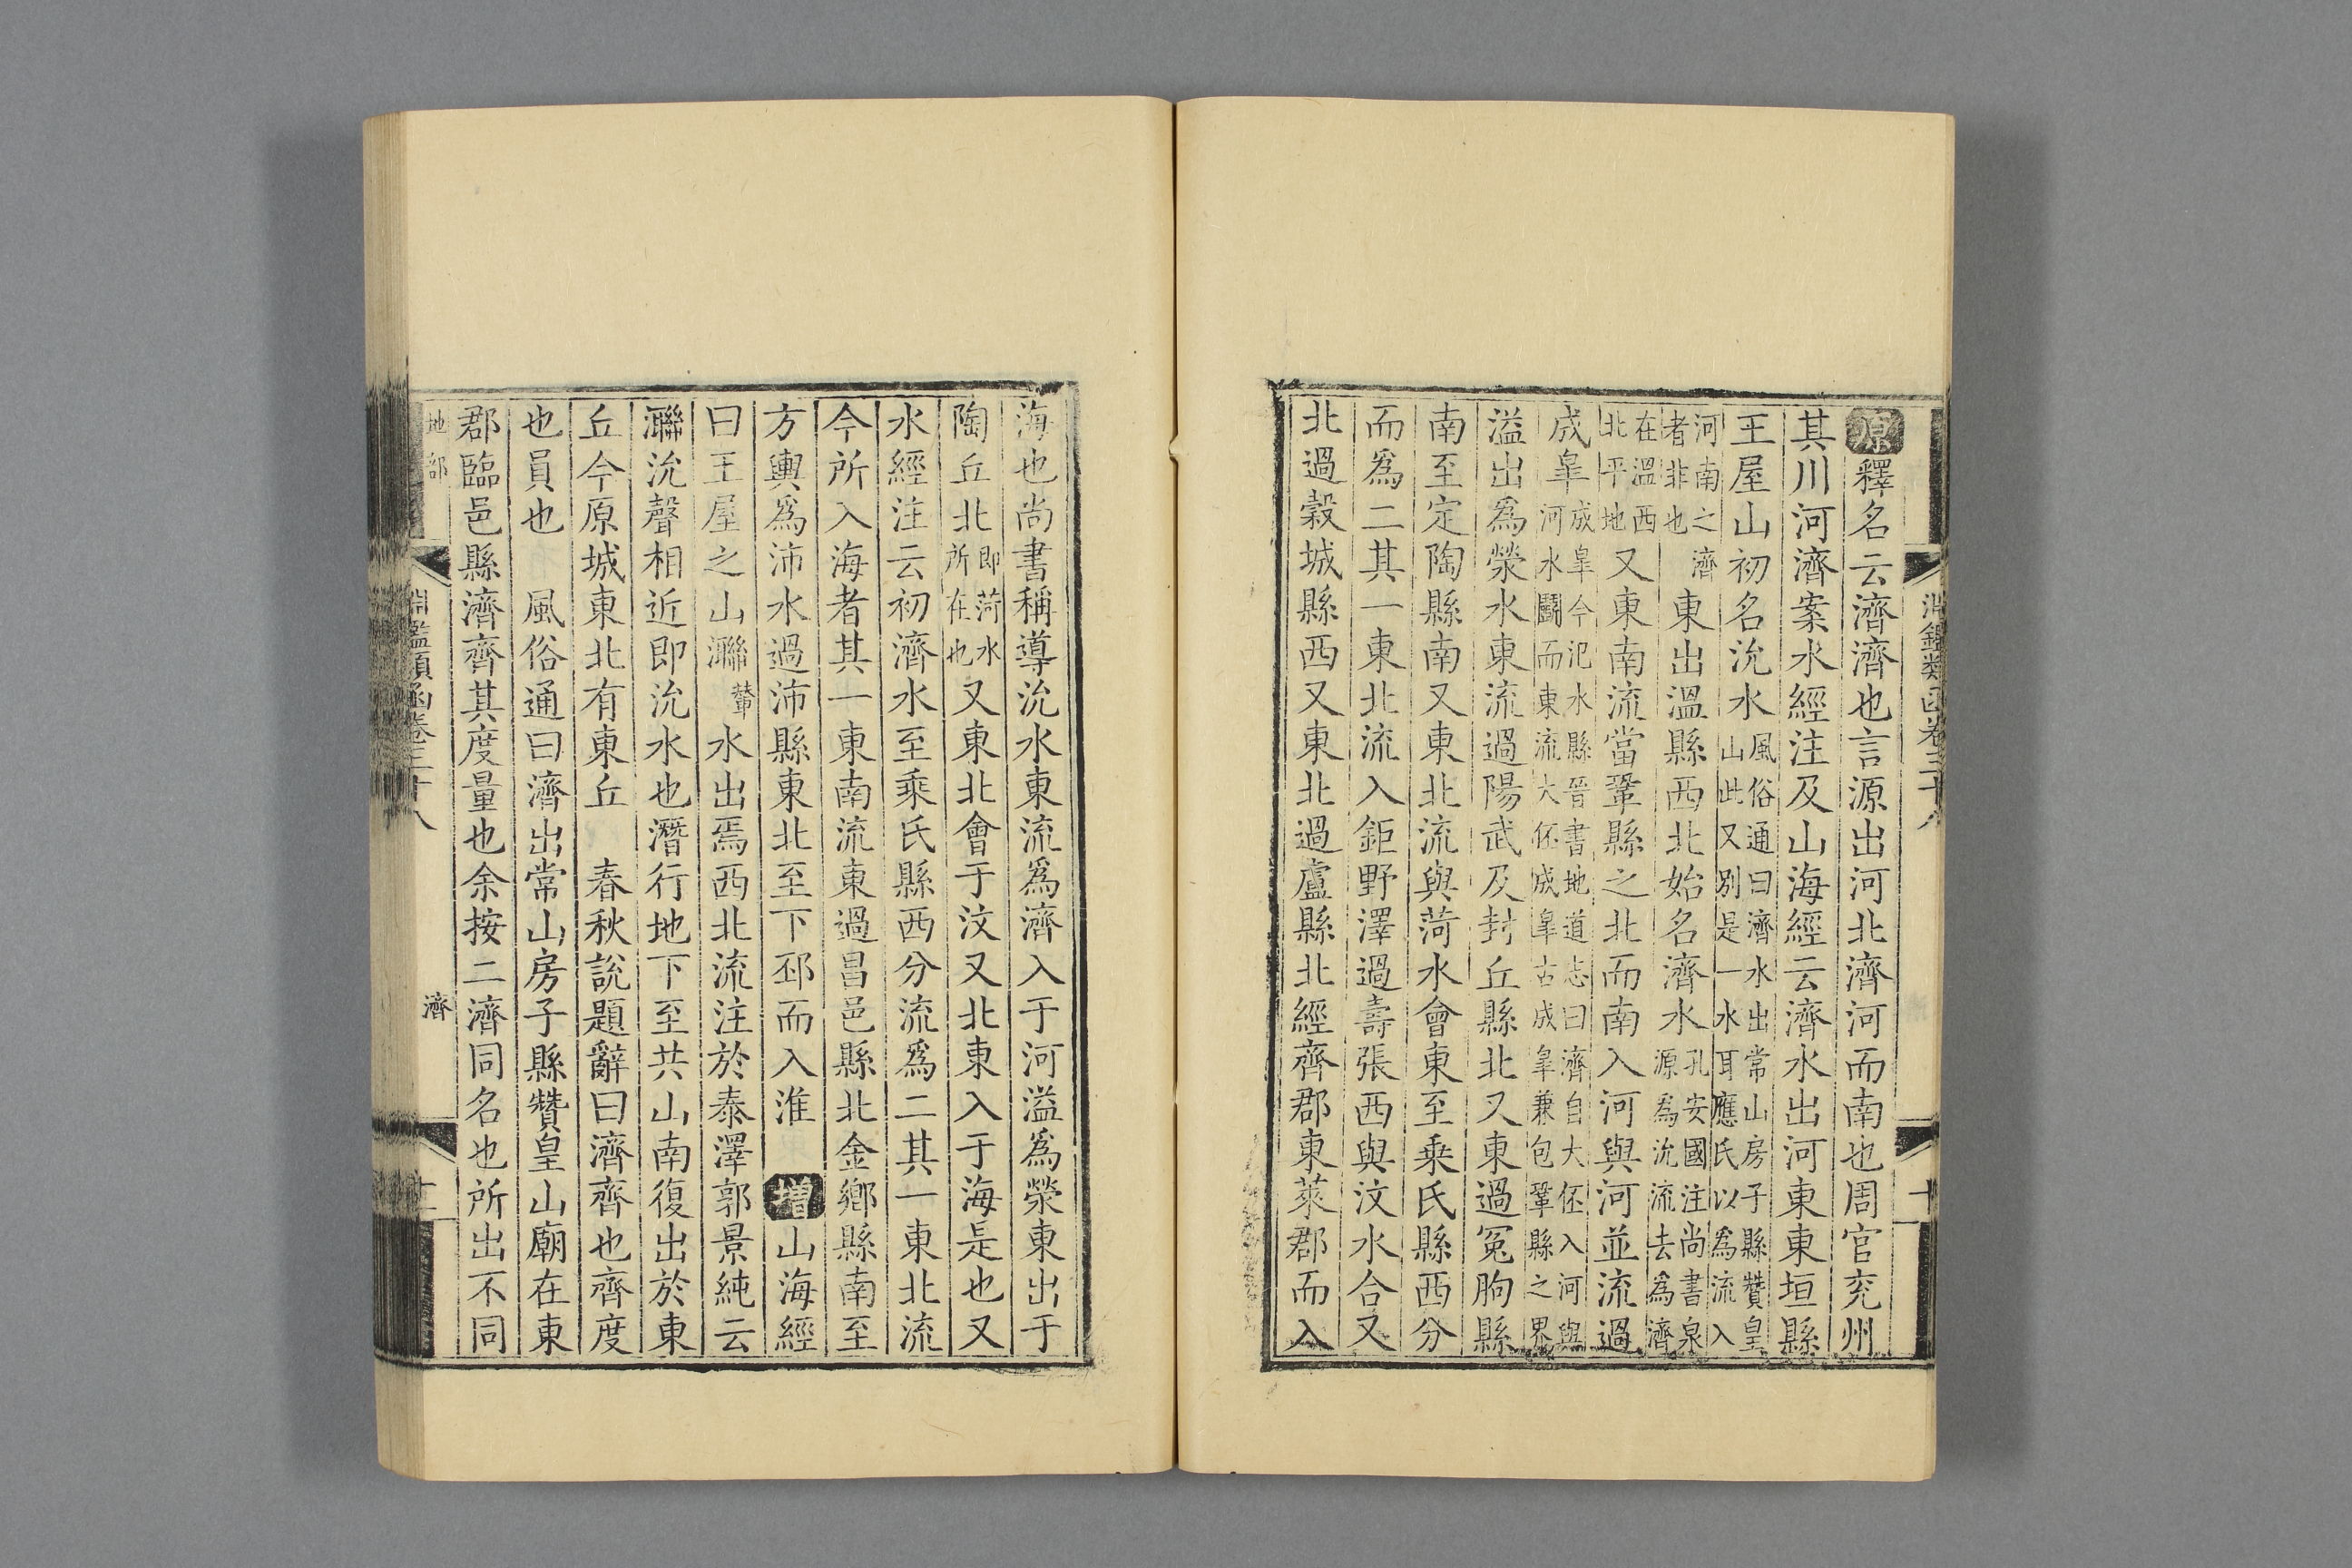 淵鑑類函卷三十八
十
原釋名云濟濟也言源出河北濟河而南也周官兖州
其川河濟案水經注及山海經云濟水出河東東垣縣
王屋山初名沇水風俗通曰濟水出常山房子縣贊皇山此又別是一水耳應氏以為流入
河南之濟者非也東出溫縣西北始名濟水孔安國注尚書泉源為沇流去為濟
在溫西北平地又東南流當鞏縣之北而南入河與河並流過
成皐成皐今汜水縣晉書地道志曰濟自大伾入河與河水鬬而東流大伾成皐古成皐兼包鞏縣之界
溢出爲滎水東流過陽武及封丘縣北又東過冤朐縣
南至定陶縣南又東北流與菏水會東至乘氏縣西分
而爲二其一東北流入鉅野澤過壽張西與汶水合又
北過穀城縣西又東北過盧縣北經齊郡東萊郡而入
海也尚書稱導沇水東流爲濟入于河溢爲滎東出于
陶丘北即菏水所在也又東北會于汶又北東入于海是也又
水經注云初濟水至乘氏縣西分流爲二其一東北流
今所入海者其一東南流東過昌邑縣北金鄉縣南至
方輿爲沛水過沛縣東北至下邳而入淮 增山海經
曰王屋之山㶌輦水出焉西北流注於泰澤郭景純云
㶌沇聲相近即沇水也潛行地下至共山南復出於東
丘今原城東北有東丘 春秋說題辭曰濟齊也齊度
也員也 風俗通曰濟出常山房子縣贊皇山廟在東
郡臨邑縣濟齊其度量也余按二濟同名也所出不同
地部
淵鑑類函卷三十八
濟